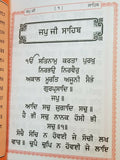 ਜਪੁ ਜੀ ਸਾਹਿਬ
ੴ ਸਤਿਨਾਮੁ ਕਰਤਾ ਪੁਰਖੁ
ਨਿਰਭਉ ਨਿਰਵੈਰੁ
ਅਕਾਲ ਮੂਰਤਿ ਅਜੂਨੀ ਸੈਭੰ
ਗੁਰਪ੍ਰਸਾਦਿ॥
ਜਪੁ॥
ਆਦਿ ਸਚੁ ਜੁਗਾਦਿ ਸਚੁ॥
ਹੈ ਭੀ ਸਚੁ ਨਾਨਕ ਹੋਸੀ ਭੀ
ਸਚੁ॥੧॥
ਸੋਚੈ ਸੋਚਿ ਨ ਹੋਵਈ ਜੇ ਸੋਚੀ ਲਖ
ਵਾਰ॥ ਚੁਪੈ ਚੁਪਿ ਨ ਹੋਵਈ ਜੇ ਲਾਇ